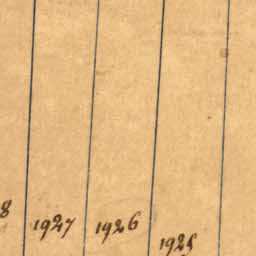 8 1927 1926 1925